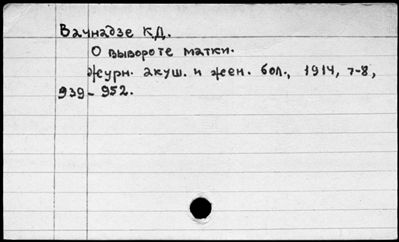 Вачнадзе К.Д.
О вывороте матки.
Журн. акуш. и жен. бол., 1914, 7-8,
939-952.